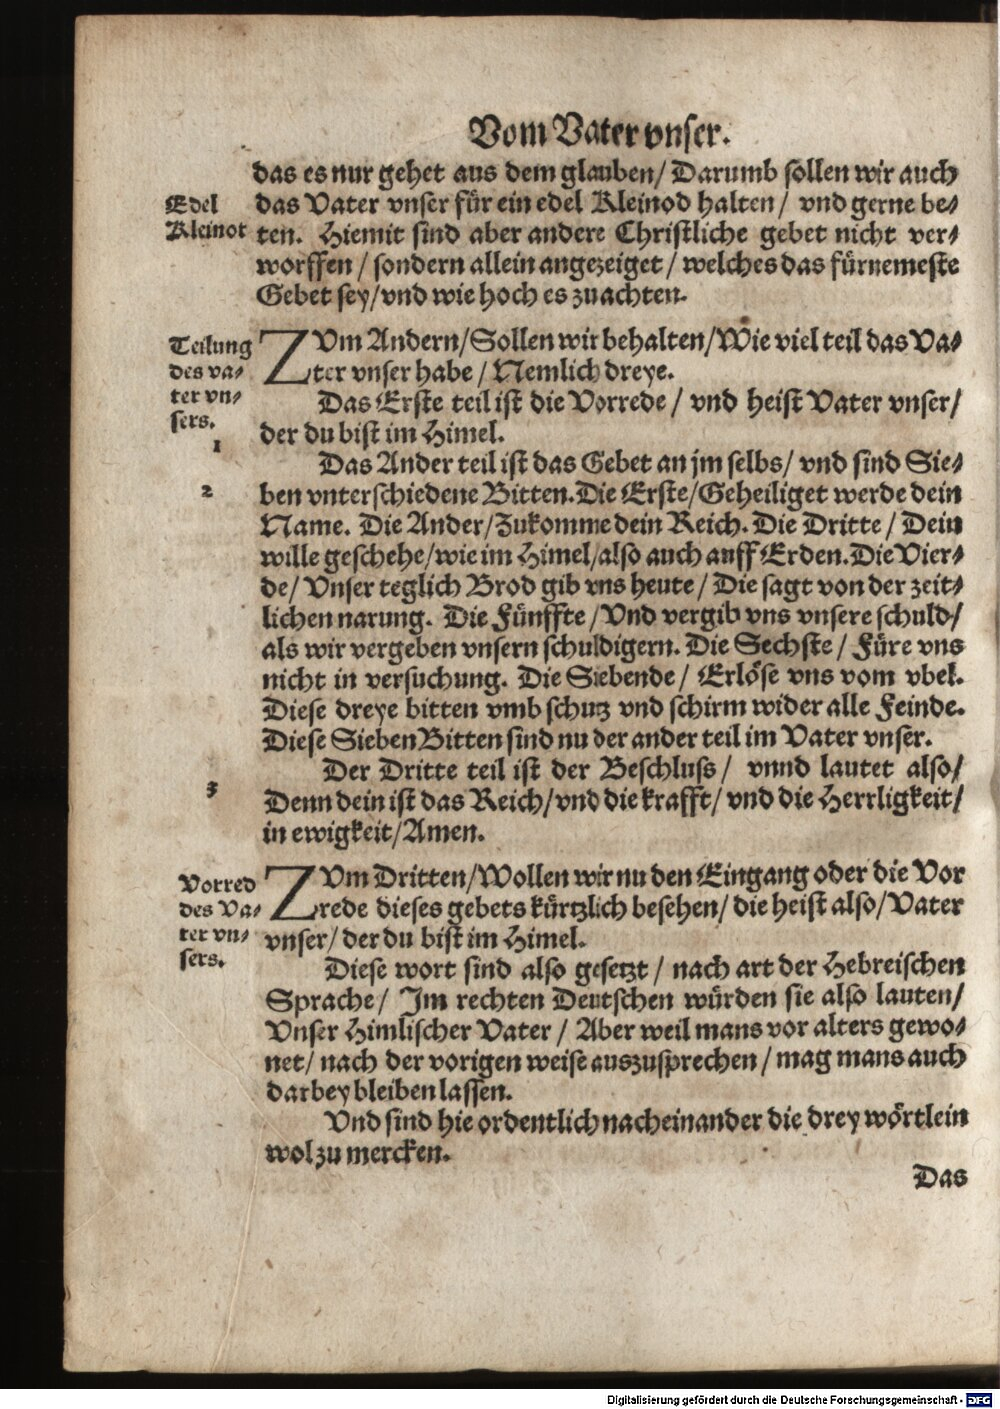 Vom Vater vnser.
das es nur gehet aus dem glauben/ Darumb sollen wir auch
Edel
das Vater vnser für ein edel Kleinod halten/ vnd gerne be-
Kleinot
ten. Hiemit sind aber andere Christliche gebet nicht ver-
worffen/ sondern allein angezeiget/ welches das fürnemeste
Gebet sey/ vnd wie hoch es zu achten.
Teilung
des va-
ter vn-
sers.
ZVm Andern/ Sollen wir behalten/ Wie viel teil das Va-
ter vnser habe/ Nemlich dreye.
Das Erste teil ist die Vorrede/ vnd heist Vater vnser/
1
der du bist im Himel.
Das Ander teil ist das Gebet an jm selbs/ vnd sind Sie-
2
ben vnterschiedene Bitten. Die Erste/ Geheiliget werde dein
Name. Die Ander/ Zukomme dein Reich. Die Dritte/ Dein
wille geschehe/ wie im Himel/ also auch auff Erden. Die Vier-
de/ Vnser teglich Brod gib vns heute/ Die sagt von der zeit-
lichen narung. Die Fünffte/ Vnd vergib vns vnsere schuld/
als wir vergeben vnsern schuldigern. Die Sechste/ Füre vns
nicht in versuchung. Die Siebende/ Erlöse vns vom vbel.
Diese dreye bitten vmb schutz vnd schirm wider alle Feinde.
Diese Sieben Bitten sind nu der ander teil im Vater vnser.
Der Dritte teil ist der Beschluss/ vnnd lautet also/
3
Denn dein ist das Reich/ vnd die krafft/ vnd die Herrligkeit/
in ewigkeit/ Amen.
Vorred
des Va-
ter vn-
sers.
ZVm Dritten/ Wollen wir nu den Eingang oder die Vor
rede dieses gebets kürtzlich besehen/ die heist also/ Vater
vnser/ der du bist im Himel.
Diese wort sind also gesetzt/ nach art der Hebreischen
Sprache/ Im rechten Deutschen würden sie also lauten/
Vnser Himlischer Vater/ Aber weil mans vor alters gewo-
net/ nach der vorigen weise auszusprechen/ mag mans auch
darbey bleiben lassen.
Vnd sind hie ordentlich nacheinander die drey wörtlein
wol zu mercken.
Das
Digitalisierung gefördert durch die Deutsche Forschungsgemeinschaft - DFG